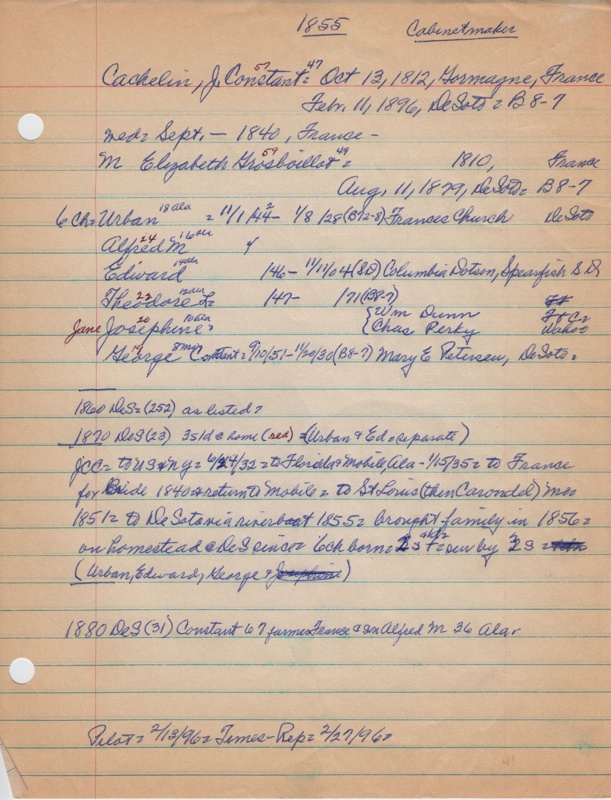 1855 Cabinetmaker
Cachelin, J. Constant 57 47 = Oct 13, 1812, Gormagne, France
Febr. 11, 1896, DeSoto = B8-7
med = Sept. — 1840, France -
M Elizabeth Grosboillot 59 49 = 1810, France
Aug. 11, 1879, DeSoto = B8-7
6 Ch = Urban 18 Ala = 11/1/42 - 1/8/28 (B12-8) Frances Church DeSoto
Alfred M 24 16 Ala
Edward 14 Ala /46 - 11/11/04 (SD) Columbia Dotson, Spearfish S.D.
Theodore L 22 12 Ala /47 - /71 (B8-7)
Jane Josephine 20 10 Ala = {Wm Dunn Ft C =
{Chas Perky Wahoo
George 19 8 mo Constant = 9/10/51 - 11/20/30 (B8-7) Mary E Petersen, DeSoto =
1860 DeS = (252) as listed?
1870 DeS (23) 3 s 1 d @ home (red) = (Urban & Ed = separate)
JCC = to US @ NY = 6/24/32 = to Florida & Mobile Ala - 1/15/35 = to France
for Bride 1840 & return to Mobile = to St Louis (then Carondel) Mo =
1851 = to DeSoto via riverboat 1855 = brought family in 1856 =
on homestead @ DeS since = 6 ch born = sur by 3 S =
(Urban, Edward, George &)
1880 DeS (31) Constant 67 farmer France & son Alfred M 36 Ala.
Pilot = 2/13/96 = Times-Rep = 2/27/96 =